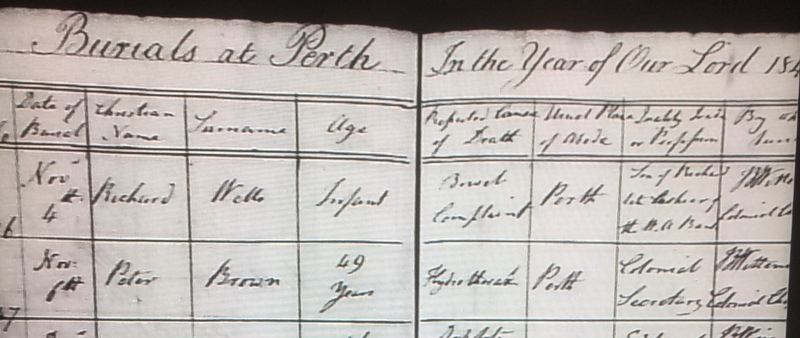 Burials at Perth In the Year of Our Lord 184
Date of Burial Christian Name Surname Age Reputed Cause of Death Usual Place of Abode Quality or Profession By
Novr 4th Richard Wells Infant Bowel Complaint Perth Son of Richard 1st Cashier of the W.A. Bank Colonial
6
Nov. 6th Peter Brown 49 Years Hydrothorax Perth Colonial Secretary Colonial
7